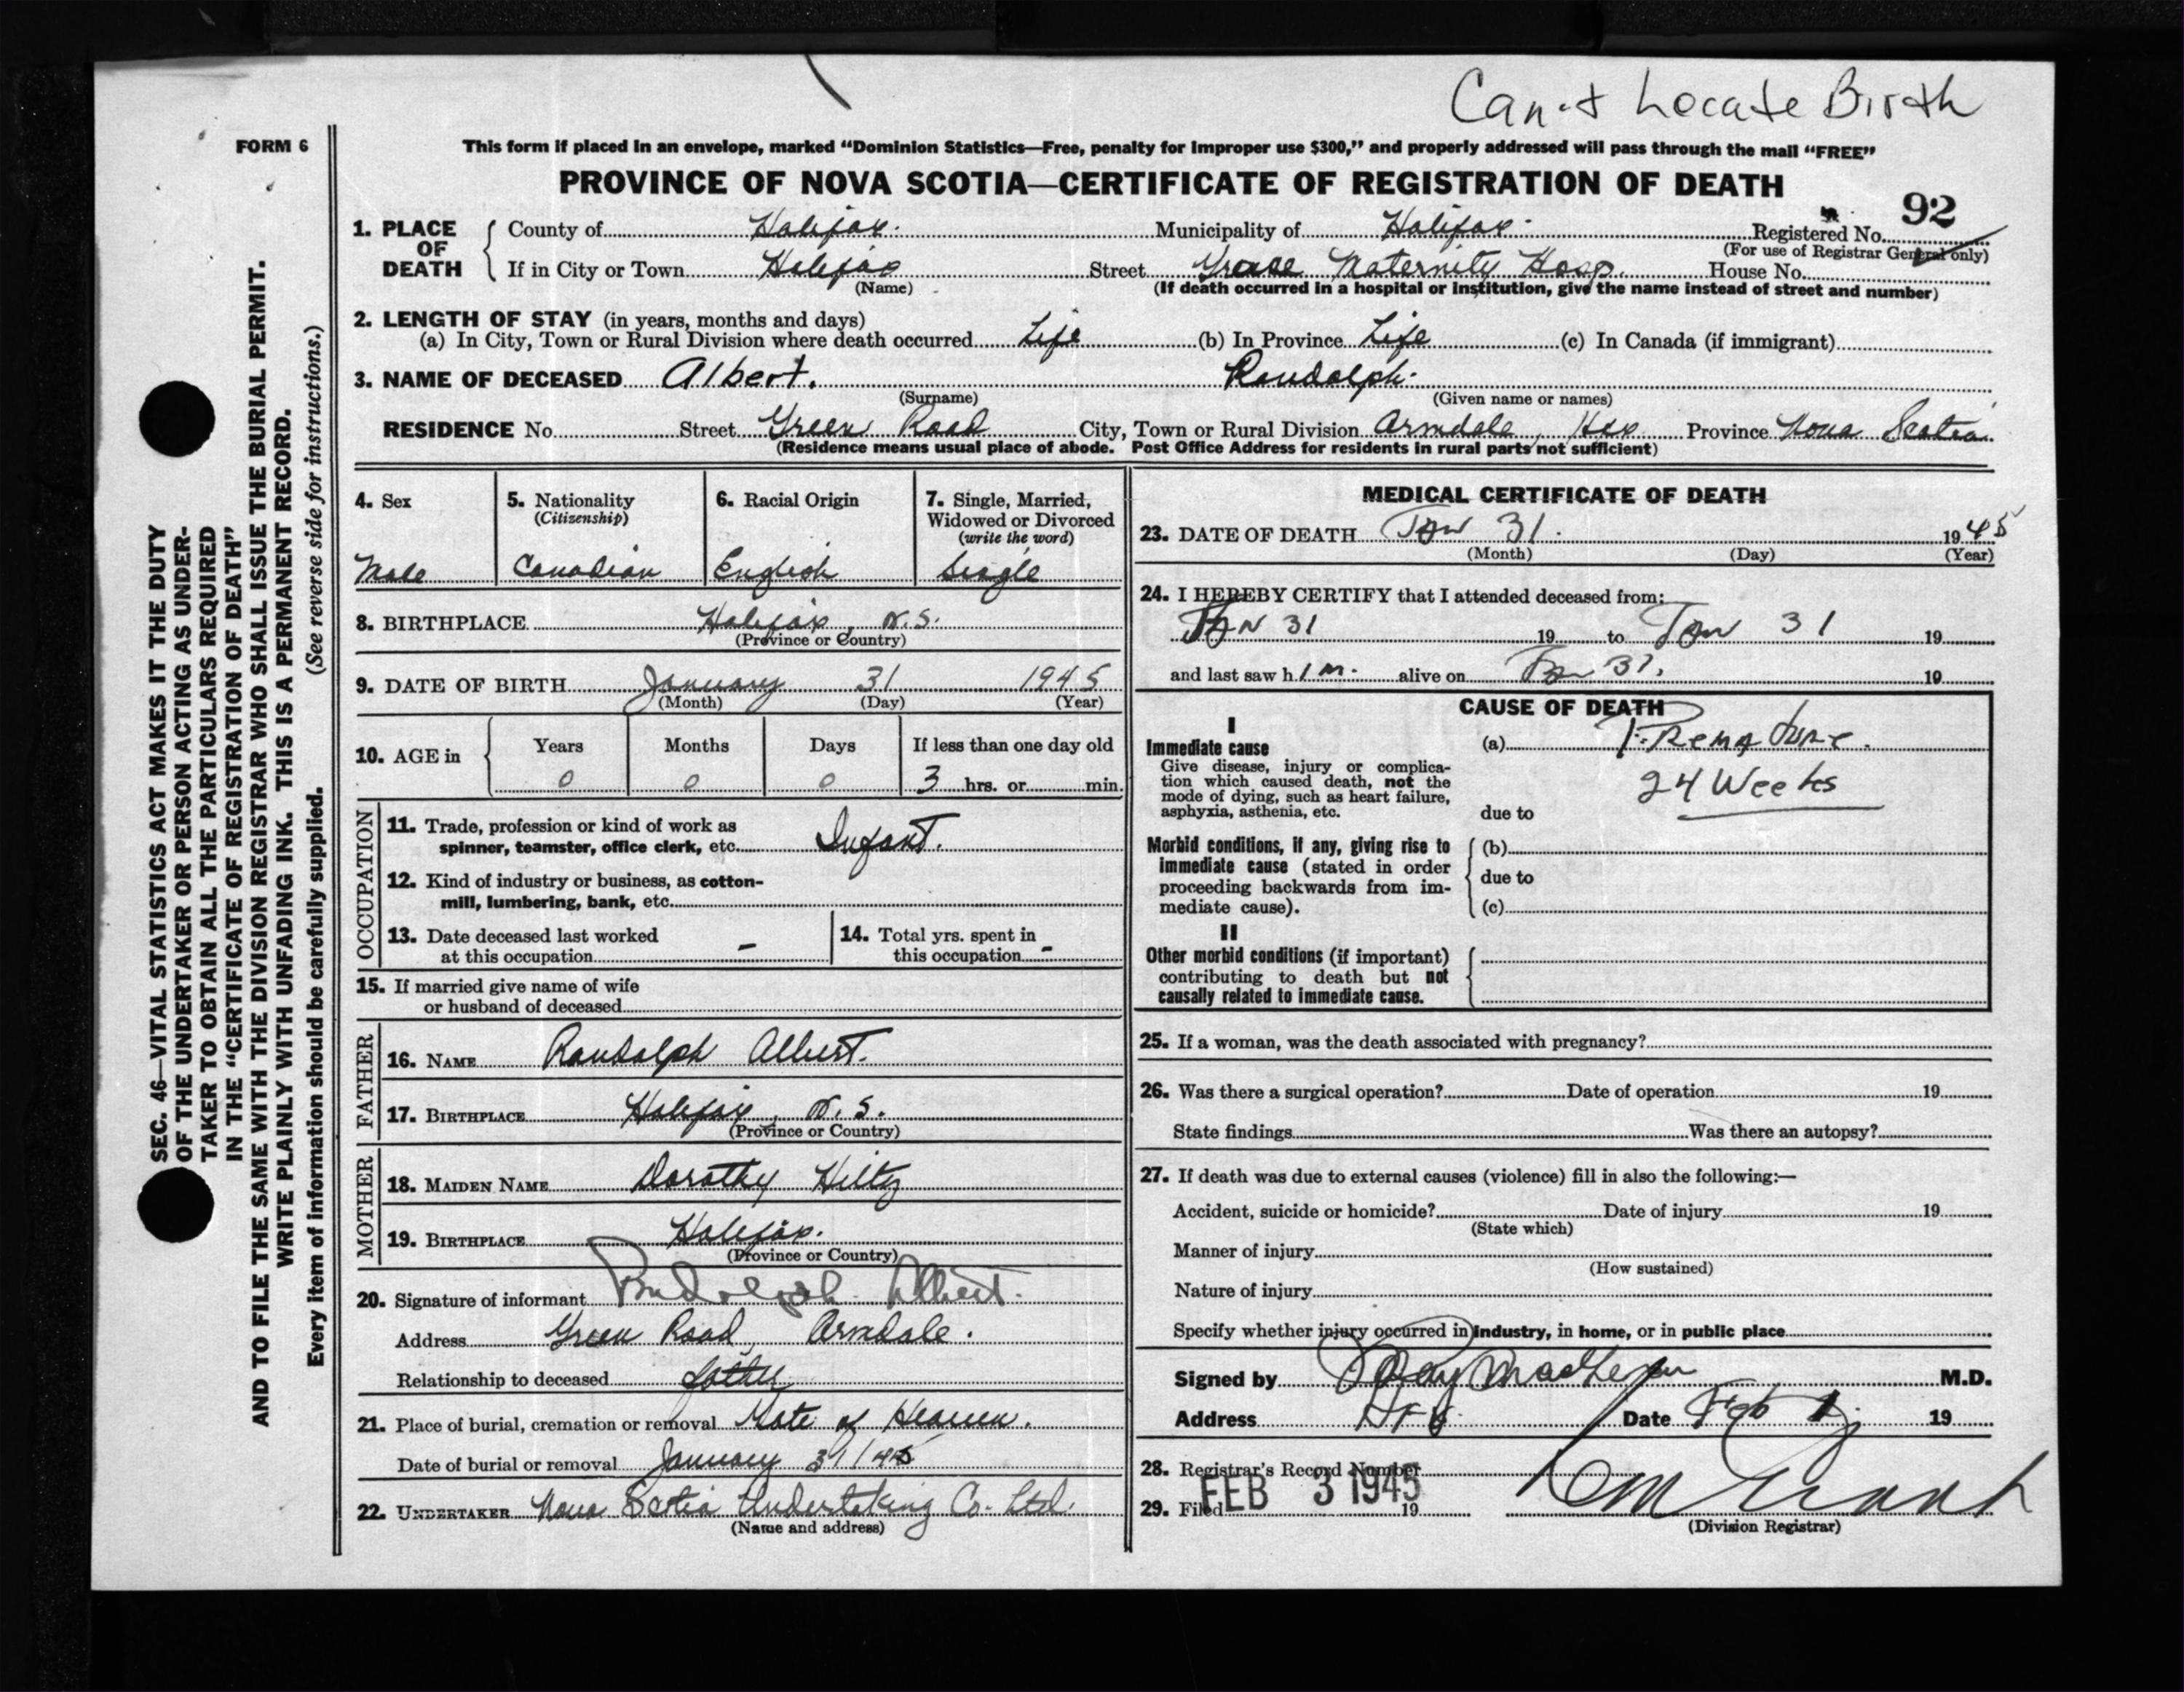 Can't Locate Birth
FORM 6
This form if placed in an envelope, marked “Dominion Statistics—Free, penalty for improper use $300,” and properly addressed will pass through the mail “FREE”
PROVINCE OF NOVA SCOTIA—CERTIFICATE OF REGISTRATION OF DEATH
92
1. PLACE OF DEATH County of Halifax. Municipality of Halifax. Registered No.
(For use of Registrar General only)
If in City or Town Halifax Street Grace Maternity Hosp. House No.
(Name) (If death occurred in a hospital or institution, give the name instead of street and number)
2. LENGTH OF STAY (in years, months and days)
(a) In City, Town or Rural Division where death occurred Life (b) In Province Life (c) In Canada (if immigrant)
3. NAME OF DECEASED Albert. Randolph.
(Surname) (Given name or names)
RESIDENCE No. Street Green Road City, Town or Rural Division Armdale, Hfx Province Nova Scotia.
(Residence means usual place of abode. Post Office Address for residents in rural parts not sufficient)
SEC. 46—VITAL STATISTICS ACT MAKES IT THE DUTY
OF THE UNDERTAKER OR PERSON ACTING AS UNDER-
TAKER TO OBTAIN ALL THE PARTICULARS REQUIRED
IN THE “CERTIFICATE OF REGISTRATION OF DEATH”
AND TO FILE THE SAME WITH THE DIVISION REGISTRAR WHO SHALL ISSUE THE BURIAL PERMIT.
WRITE PLAINLY WITH UNFADING INK. THIS IS A PERMANENT RECORD.
Every item of information should be carefully supplied. (See reverse side for instructions.)
4. Sex
Male
5. Nationality
(Citizenship)
Canadian
6. Racial Origin
English
7. Single, Married,
Widowed or Divorced
(write the word)
Single
8. BIRTHPLACE Halifax, N.S.
(Province or Country)
9. DATE OF BIRTH January 31 1945
(Month) (Day) (Year)
10. AGE in Years Months Days If less than one day old
0 0 0 3 hrs. or min.
OCCUPATION
11. Trade, profession or kind of work as
spinner, teamster, office clerk, etc. Infant.
12. Kind of industry or business, as cotton-
mill, lumbering, bank, etc.
13. Date deceased last worked
at this occupation -
14. Total yrs. spent in
this occupation -
15. If married give name of wife
or husband of deceased
FATHER
16. NAME Randolph Albert.
17. BIRTHPLACE Halifax, N.S.
(Province or Country)
MOTHER
18. MAIDEN NAME Dorothy Hiltz
19. BIRTHPLACE Halifax.
(Province or Country)
20. Signature of informant Randolph Albert.
Address Green Road, Armdale.
Relationship to deceased father
21. Place of burial, cremation or removal Gate of Heaven.
Date of burial or removal January 31/45
22. UNDERTAKER Nova Scotia Undertaking Co. Ltd.
(Name and address)
MEDICAL CERTIFICATE OF DEATH
23. DATE OF DEATH Jan 31. 1945
(Month) (Day) (Year)
24. I HEREBY CERTIFY that I attended deceased from:
Jan 31 19 to Jan 31 19
and last saw h im. alive on Jan 31, 19
CAUSE OF DEATH
I
Immediate cause
Give disease, injury or complica-
tion which caused death, not the
mode of dying, such as heart failure,
asphyxia, asthenia, etc.
(a) Premature.
24 Weeks
due to
Morbid conditions, if any, giving rise to
immediate cause (stated in order
proceeding backwards from im-
mediate cause).
(b)
due to
(c)
II
Other morbid conditions (if important)
contributing to death but not
causally related to immediate cause.
25. If a woman, was the death associated with pregnancy?
26. Was there a surgical operation? Date of operation 19
State findings Was there an autopsy?
27. If death was due to external causes (violence) fill in also the following:—
Accident, suicide or homicide? Date of injury 19
(State which)
Manner of injury
(How sustained)
Nature of injury
Specify whether injury occurred in industry, in home, or in public place
Signed by M.D.
Address Hfx Date Feb 19
28. Registrar's Record Number
29. Filed FEB 3 1945 19
(Division Registrar)